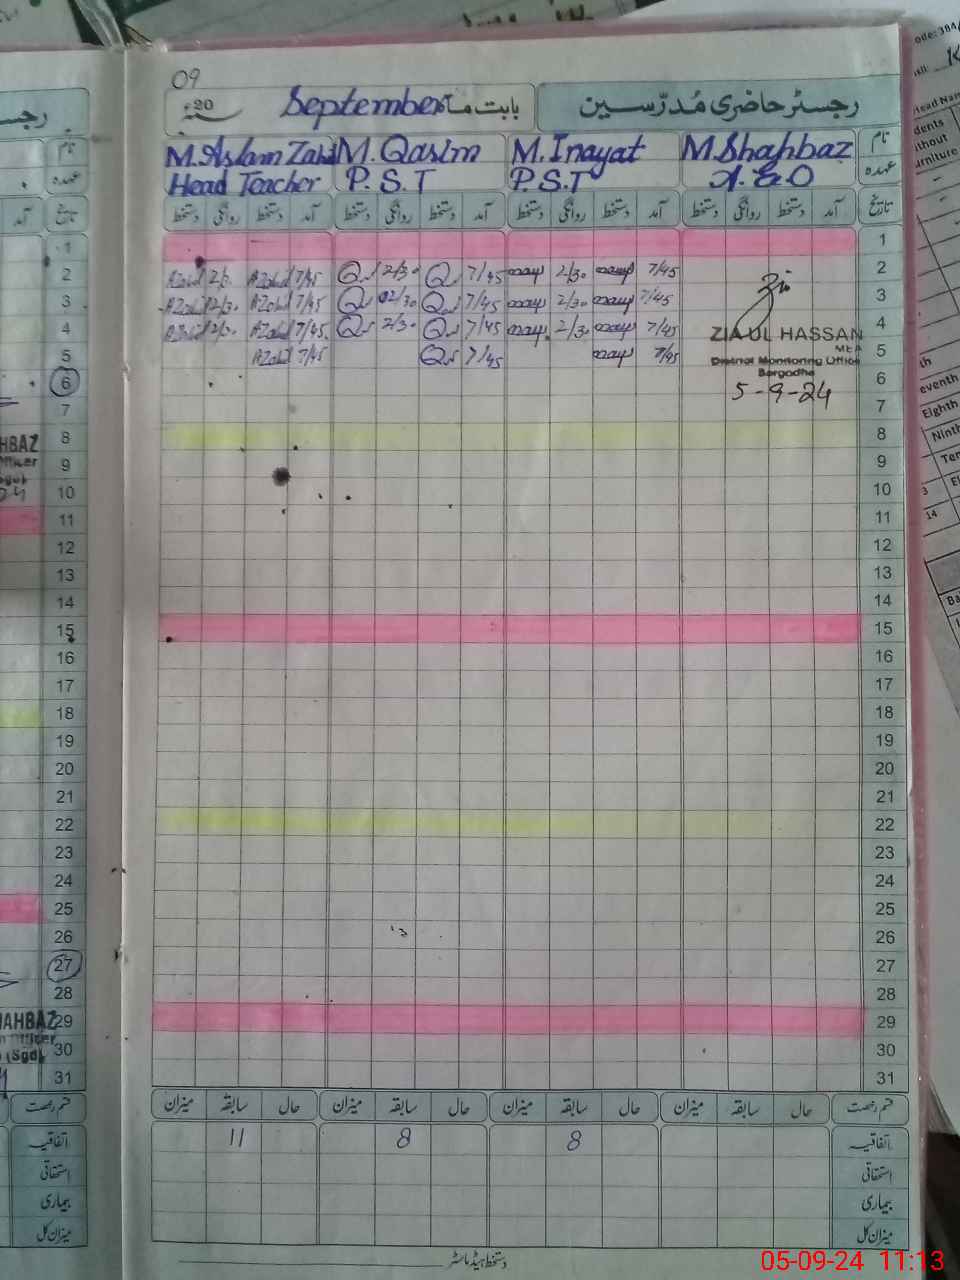 09
رجسٹر حاضری مُدرّسین بابت ماہ September 20ء
نام M. Aslam Zahid M. Qasim M. Inayat M. Shahbaz
عہدہ Head Teacher P.S.T P.S.T A.E.O
تاریخ آمد دستخط روانگی دستخط آمد دستخط روانگی دستخط آمد دستخط روانگی دستخط آمد دستخط روانگی دستخط
1
2 AZahid 7/45 Q 2/30 Q 7/45 2/30 7/45
3 AZahid 2/30 AZahid 7/45 Q 2/30 Q 7/45 2/30 7/45
4 AZahid 2/30 AZahid 7/45 Q 2/30 Q 7/45 2/30 7/45
ZIA UL HASSAN
MEA
5 AZahid 7/45 Q 7/45 7/45
District Monitoring Office
Sargodha
6
5-9-24
7
8
9
10
11
12
13
14
15
16
17
18
19
20
21
22
23
24
25
26
27
28
29
30
31
قسم رخصت حال سابقہ میزان حال سابقہ میزان حال سابقہ میزان حال سابقہ میزان
اتفاقیہ 11 8 8
استحقاقی
بیماری
میزان کل
دستخط ہیڈ ماسٹر
05-09-24 11:13